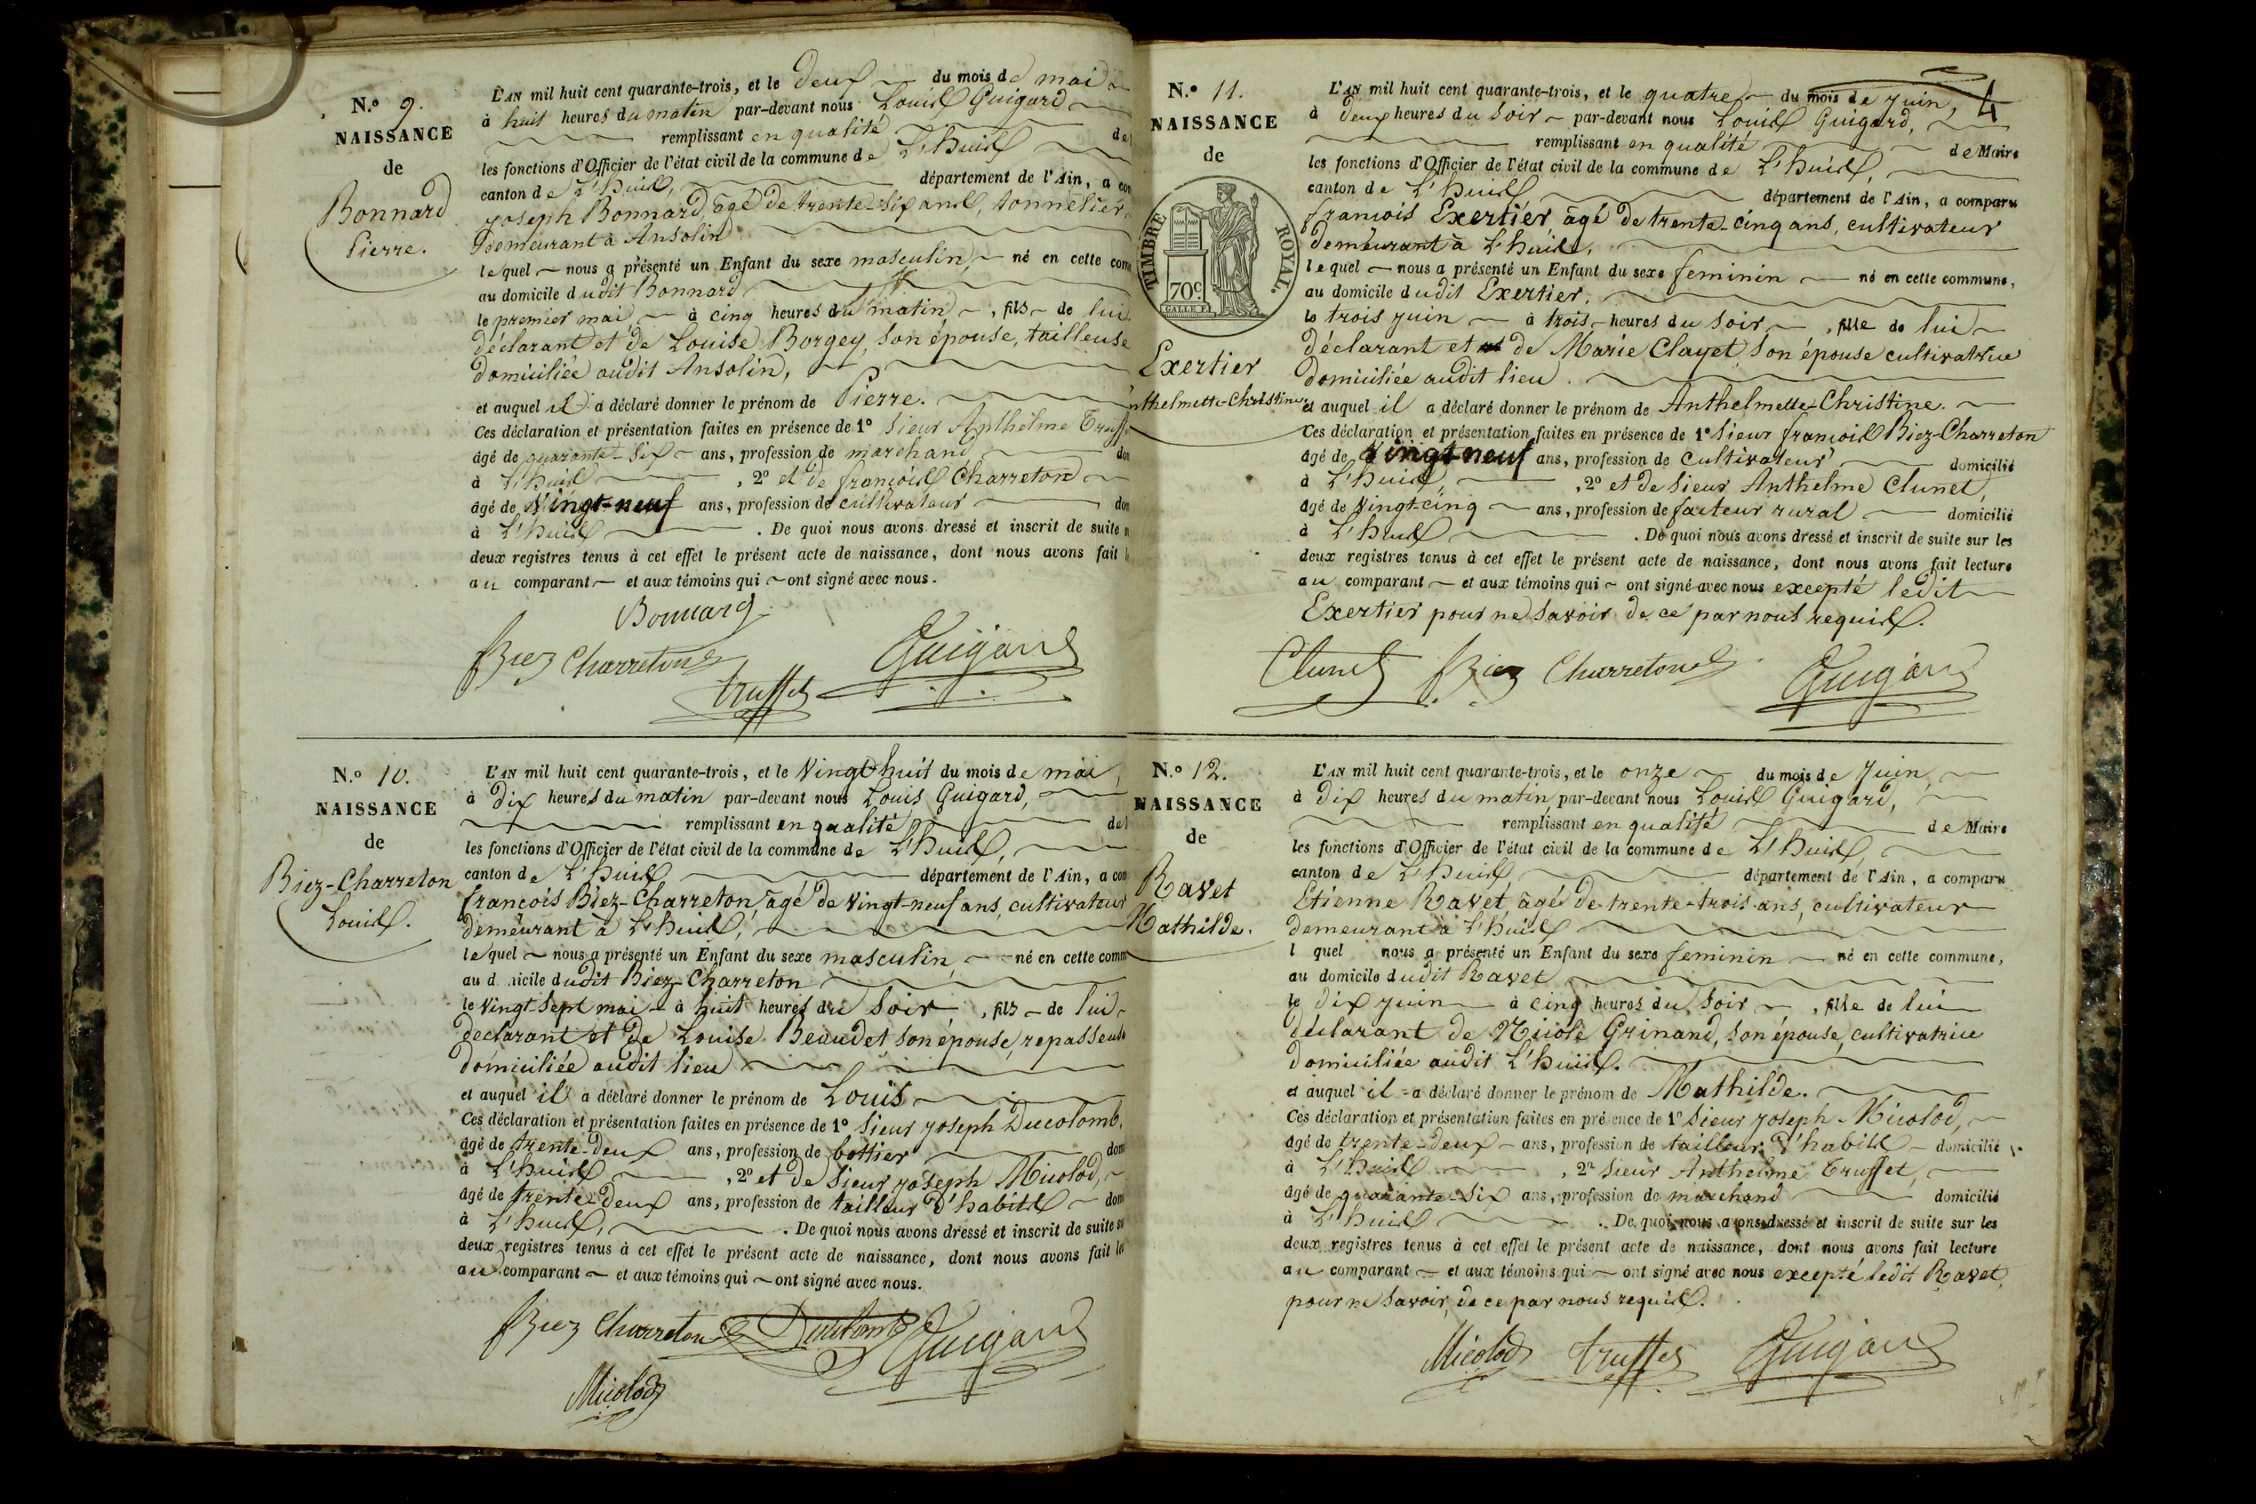 N.o 9.
NAISSANCE
de
Bonnard
Pierre.
L'AN mil huit cent quarante-trois, et le deux du mois de mai
à huit heures du matin par-devant nous Louis Guigard
remplissant en qualité de
les fonctions d'Officier de l'état civil de la commune de L'huis
canton de L'huis, département de l'Ain, a com
joseph Bonnard, âgé de trente-six ans, tonnelier
demeurant à Ansolin
lequel nous a présenté un Enfant du sexe masculin, né en cette com
au domicile dudit Bonnard
le premier mai à cinq heures du matin, fils de lui
déclarant et de Louise Borgey, son épouse, tailleuse
domiciliée audit Ansolin,
et auquel il a déclaré donner le prénom de Pierre.
Ces déclaration et présentation faites en présence de 1º Sieur Anthelme Truff
âgé de quarante-six ans, profession de marchand dom
à L'huis, 2º et de françois Charreton
âgé de Vingt-neuf ans, profession de cultivateur dom
à L'huis. De quoi nous avons dressé et inscrit de suite
deux registres tenus à cet effet le présent acte de naissance, dont nous avons fait
au comparant et aux témoins qui ont signé avec nous.
Bonnard
Biez Charreton
Guigard
Truffet
N.o 10.
NAISSANCE
de
Biez-Charreton
Louis.
L'AN mil huit cent quarante-trois, et le Vingt-huit du mois de mai,
à dix heures du matin par-devant nous Louis Guigard,
remplissant en qualité de
les fonctions d'Officier de l'état civil de la commune de L'huis,
canton de L'huis département de l'Ain, a com
françois Biez-Charreton, âgé de vingt-neuf ans, cultivateur
demeurant à L'huis,
lequel nous a présenté un Enfant du sexe masculin, né en cette comm
au d micile dudit Biez-Charreton
le Vingt-sept mai à huit heures du Soir, fils de lui
declarant et de Louise Beaudet, son épouse, repasseuse
domiciliée audit lieu
et auquel il a déclaré donner le prénom de Louis
Ces déclaration et présentation faites en présence de 1º Sieur joseph Ducolomb,
âgé de trente-deux ans, profession de bottier dom
à L'huis, 2º et de Sieur joseph Micolod,
âgé de trente-deux ans, profession de tailleur d'habits dom
à L'huis,. De quoi nous avons dressé et inscrit de suite su
deux registres tenus à cet effet le présent acte de naissance, dont nous avons fait le
au comparant et aux témoins qui ont signé avec nous.
Biez Charreton Ducolomb Guigard
Micolod
4
N.o 11.
NAISSANCE
de
TIMBRE ROYAL.
70c
Exertier
nthelmette-Christine.
L'AN mil huit cent quarante-trois, et le quatre du mois de juin,
à deux heures du Soir par-devant nous Louis Guigard,
remplissant en qualité de Maire
les fonctions d'Officier de l'état civil de la commune de L'huis,
canton de L'huis département de l'Ain, a comparu
françois Exertier, âgé de trente-cinq ans, cultivateur
demeurant à L'huis,
lequel nous a présenté un Enfant du sexe feminin né en cette commune,
au domicile dudit Exertier.
le trois juin à trois heures du Soir, fille de lui
déclarant et de Marie Clayet, son épouse cultivatrice
domiciliée audit lieu.
et auquel il a déclaré donner le prénom de Anthelmette-Christine.
Ces déclaration et présentation faites en présence de 1º Sieur françois Biez-Charreton
âgé de Vingt-neuf ans, profession de Cultivateur domicilié
à L'huis, 2º et de Sieur Anthelme Clunet,
âgé de Vingt-cinq ans, profession de facteur rural domicilié
à L'huis. De quoi nous avons dressé et inscrit de suite sur les
deux registres tenus à cet effet le présent acte de naissance, dont nous avons fait lecture
au comparant et aux témoins qui ont signé avec nous excepté ledit
Exertier pour ne Savoir de ce par nous requis.
Clunet Biez Charreton Guigard
N.o 12.
NAISSANCE
de
Ravet
Mathilde.
L'AN mil huit cent quarante-trois, et le onze du mois de juin,
à dix heures du matin par-devant nous Louis Guigard,
remplissant en qualité de Maire
les fonctions d'Officier de l'état civil de la commune de L'huis,
canton de L'huis département de l'Ain, a comparu
Etienne Ravet, âgé de trente-trois ans, cultivateur
demeurant à L'huis
l quel nous a présenté un Enfant du sexe feminin né en cette commune,
au domicile dudit Ravet
le dix juin à cinq heures du Soir, fille de lui
déclarant de Nicole Grinand, son épouse, cultivatrice
domiciliée audit L'huis.
et auquel il a déclaré donner le prénom de Mathilde.
Ces déclaration et présentation faites en présence de 1º Sieur joseph Micolod,
âgé de trente-deux ans, profession de tailleur d'habits domicilié
à L'huis, 2º Sieur Anthelme Truffet,
âgé de quarante-six ans, profession de marchand domicilié
à L'huis. De quoi nous avons dressé et inscrit de suite sur les
deux registres tenus à cet effet le présent acte de naissance, dont nous avons fait lecture
au comparant et aux témoins qui ont signé avec nous excepté ledit Ravet,
pour ne Savoir, de ce par nous requis.
Micolod Truffet Guigard